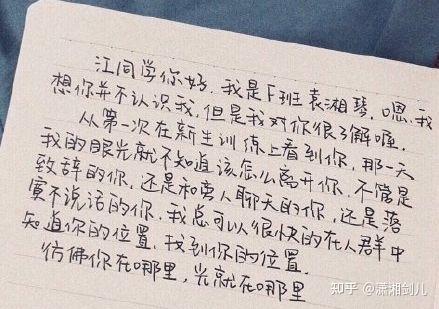 江同学你好，我是F班袁湘琴，嗯，我
想你并不认识我，但是我对你很了解喔。
从第一次在新生训练上看到你，那一天
我的眼光就不知道该怎么离开你，不管是
致辞的你，还是和旁人聊天的你，还是落
寞不说话的你，我总可以很快的在人群中
知道你的位置，找到你的位置，
彷佛你在哪里，光就在哪里
知乎 @潇湘剑儿